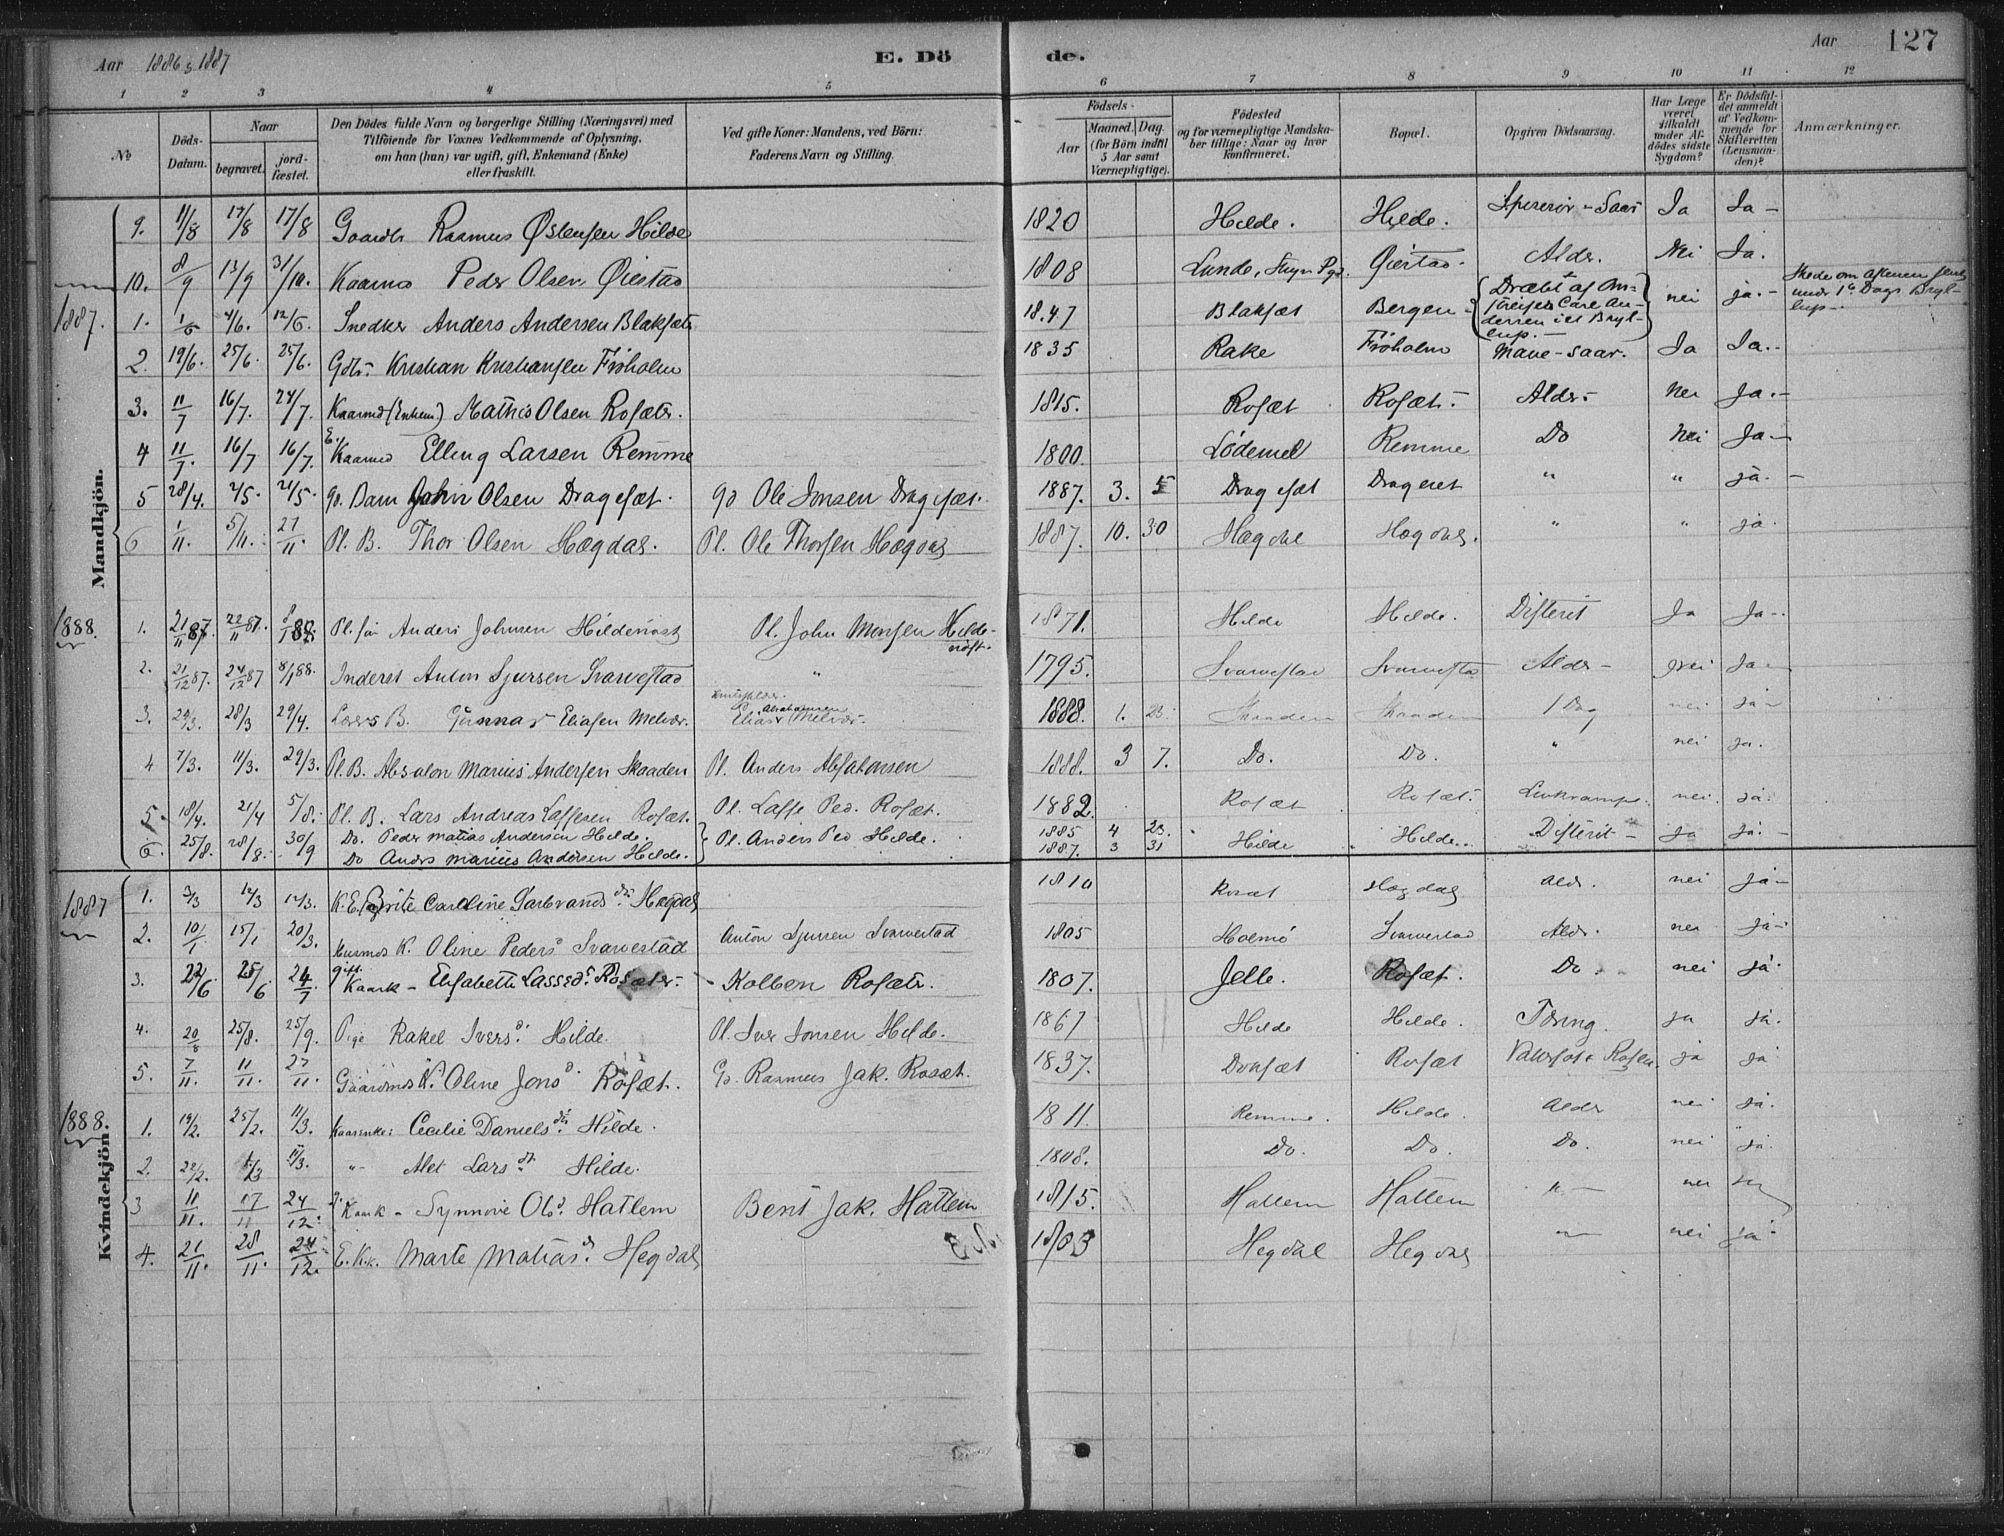 Aar 1886 & 1887 E. Dö de. Aar 127
1 2 3 4 5 6 7 8 9 10 11 12
No
Döds-Datum.
Naar begravet. jordfæstet.
Den Dödes fulde Navn og borgerlige Stilling (Næringsvei) med Tilföiende for Voxnes Vedkommende af Oplysning, om han (hun) var ugift, gift, Enkemand (Enke) eller fraskilt.
Ved gifte Koner: Mandens, ved Börn: Faderens Navn og Stilling.
Födsels- Aar Maaned. Dag. (for Börn indtil 5 Aar samt Værnepligtige).
Födested og for værnepligtige Mandskaber tillige: Naar og hvor konfirmeret.
Bopæl.
Opgiven Dödsaarsag.
Har Læge været tilkaldt under Afdödes sidste Sygdom?
Er Dödsfaldet anmeldt af Vedkommende for Skifteretten (Lensmanden)?
Anmærkninger.
Mandkjön.
9. 11/8 17/8 17/8 Gaardb Rasmus Østensen Hilde 1820 Hilde. Hilde. Spiserør-Saar Ja Ja-
10. 8/9 13/9 31/10. Kaarmd Peder Olsen Øiestad 1808 Lunde, Stryn Pgd. Øiestad. Aldr. Nei Ja.
1887.
1. 1/6 4/6. 12/6. Snedker Anders Andersen Blaksæter 1847 Blaksæt Bergen {Dræbt af Andreises Carl Anderren i et Bryllup.-} nei ja.- Skede om aftenen under 1ste Dags Bryllup-
2. 19/6. 25/6. 25/6. Gdbr. Kristian Kristiansen Frøholm 1835 Rake Frøholm Mave-saar. Ja Ja.-
3. 11/7 16/7. 24/7. Kaarmd (Enkem) Mathis Olsen Rosæter. 1815. Rosæt Rosæt.- Aldr- Nei Ja.-
4 11/7. 16/7 16/7. E. Kaarmd Elling Larsen Remme 1800. Lødemel Remme Do Nei Ja-
5 28/4. 2/5. 21/5. Gd. Barn John Olsen Dragesæt. Gd Ole Jonsen Dragesæt. 1887. 3. 5 Dragesæt Drageset " " ja. -
6 1/11. 5/11. 27/11 Pl. B. Thor Olsen Hægdal. Pl. Ole Thorsen Hægdal 1887. 10. 30 Hægdal Hægdal. " " ja.
1888.
1. 21/11 87. 22/11 87. 8/1 88. Pl. søn Anders Johnsen Hildenøst Pl. John Monsen Hildenøst. 1871. Hilde Hilde. Difterit Ja Ja-
2. 21/12 87. 24/12 87 8/1 88. Inderst Anton Sjursen Svarvestad " 1795. Svarvestad Svarvestad Aldr- nei Ja-
3. 28/3 29/4. Lærers B. Gunnar Eliasen Melvær. Elias Abrahamsen Melvær. 1888. 1. 23. Skaaden Skaaden 1 Dag nei ja-
4 7/3. 11/3. 29/3. Pl. B. Absalon Marius Andersen Skaaden Pl. Anders Absalonsen 1888. 3 7. Do. Do. " nei ja.
5 18/4. 21/4 5/8. Pl. B. Lars Andreas Lassesen Rosæt. Pl. Lasse Ped. Rosæt. 1882. Rosæt Rosæt. nei. ja.
6. 25/8. 28/8. 30/9 Do. Peder Matias Andersen Hilde.
Do Anders Marius Andersen Hilde. } Pl. Anders Ped Hilde. 1885 4 23. 1887. 3 31 Hilde Hilde. Difterit- ja ja.-
Kvindekjön.
1887
1. 3/3 12/3 12/3. K. E. Brite Caroline Garbrands dr. Hægdal 1810 Rosæt Hægdal Aldr. nei ja-
2. 10/1 15/1 20/3. Husmds K. Oline Peders d Svarvestad Anton Sjursen Svarvestad 1805 Holmø Svarvestad Aldr. nei ja-
3. 22/6 25/6 24/7 gift. Kaark- Elisabethe Lasses d. Rosæter. Kolben Rosæter. 1807. Jelle. Rosæt. Do. nei ja-
4. 20/8 25/8. 25/9. Pige Rakel Ivers d. Hilde. Pl. Iver Jonsen Hilde. 1867 Hilde Hilde. Tæring. ja ja.
5. 7/11. 11/11. 27/11 Gaardmds K. Oline Jons d. Rosæt. G. Rasmus Jak. Rosæt. 1837. Rosæt ja ja
1888.
1. 19/2. 25/2. 11/3. Kaarenke: Cecilie Daniels dr. Hilde. 1811. Remme. Hilde. Aldr nei ja.
2. 22/2. 11/3. "- Alet Lars dr. Hilde. 1808. Do. Do. Do. nei ja
3 11/11. 17/11 24/12. Kaark- Synnøve Ols d. Hatlem Bent Jak. Hatlem 1815. Hatlem Hatlem "- nei
4. 21/11. 28/11. 24/12. E. Kk. Marte Matias d. Hegdal 1803 Hegdal Hegdal "- nei ja.